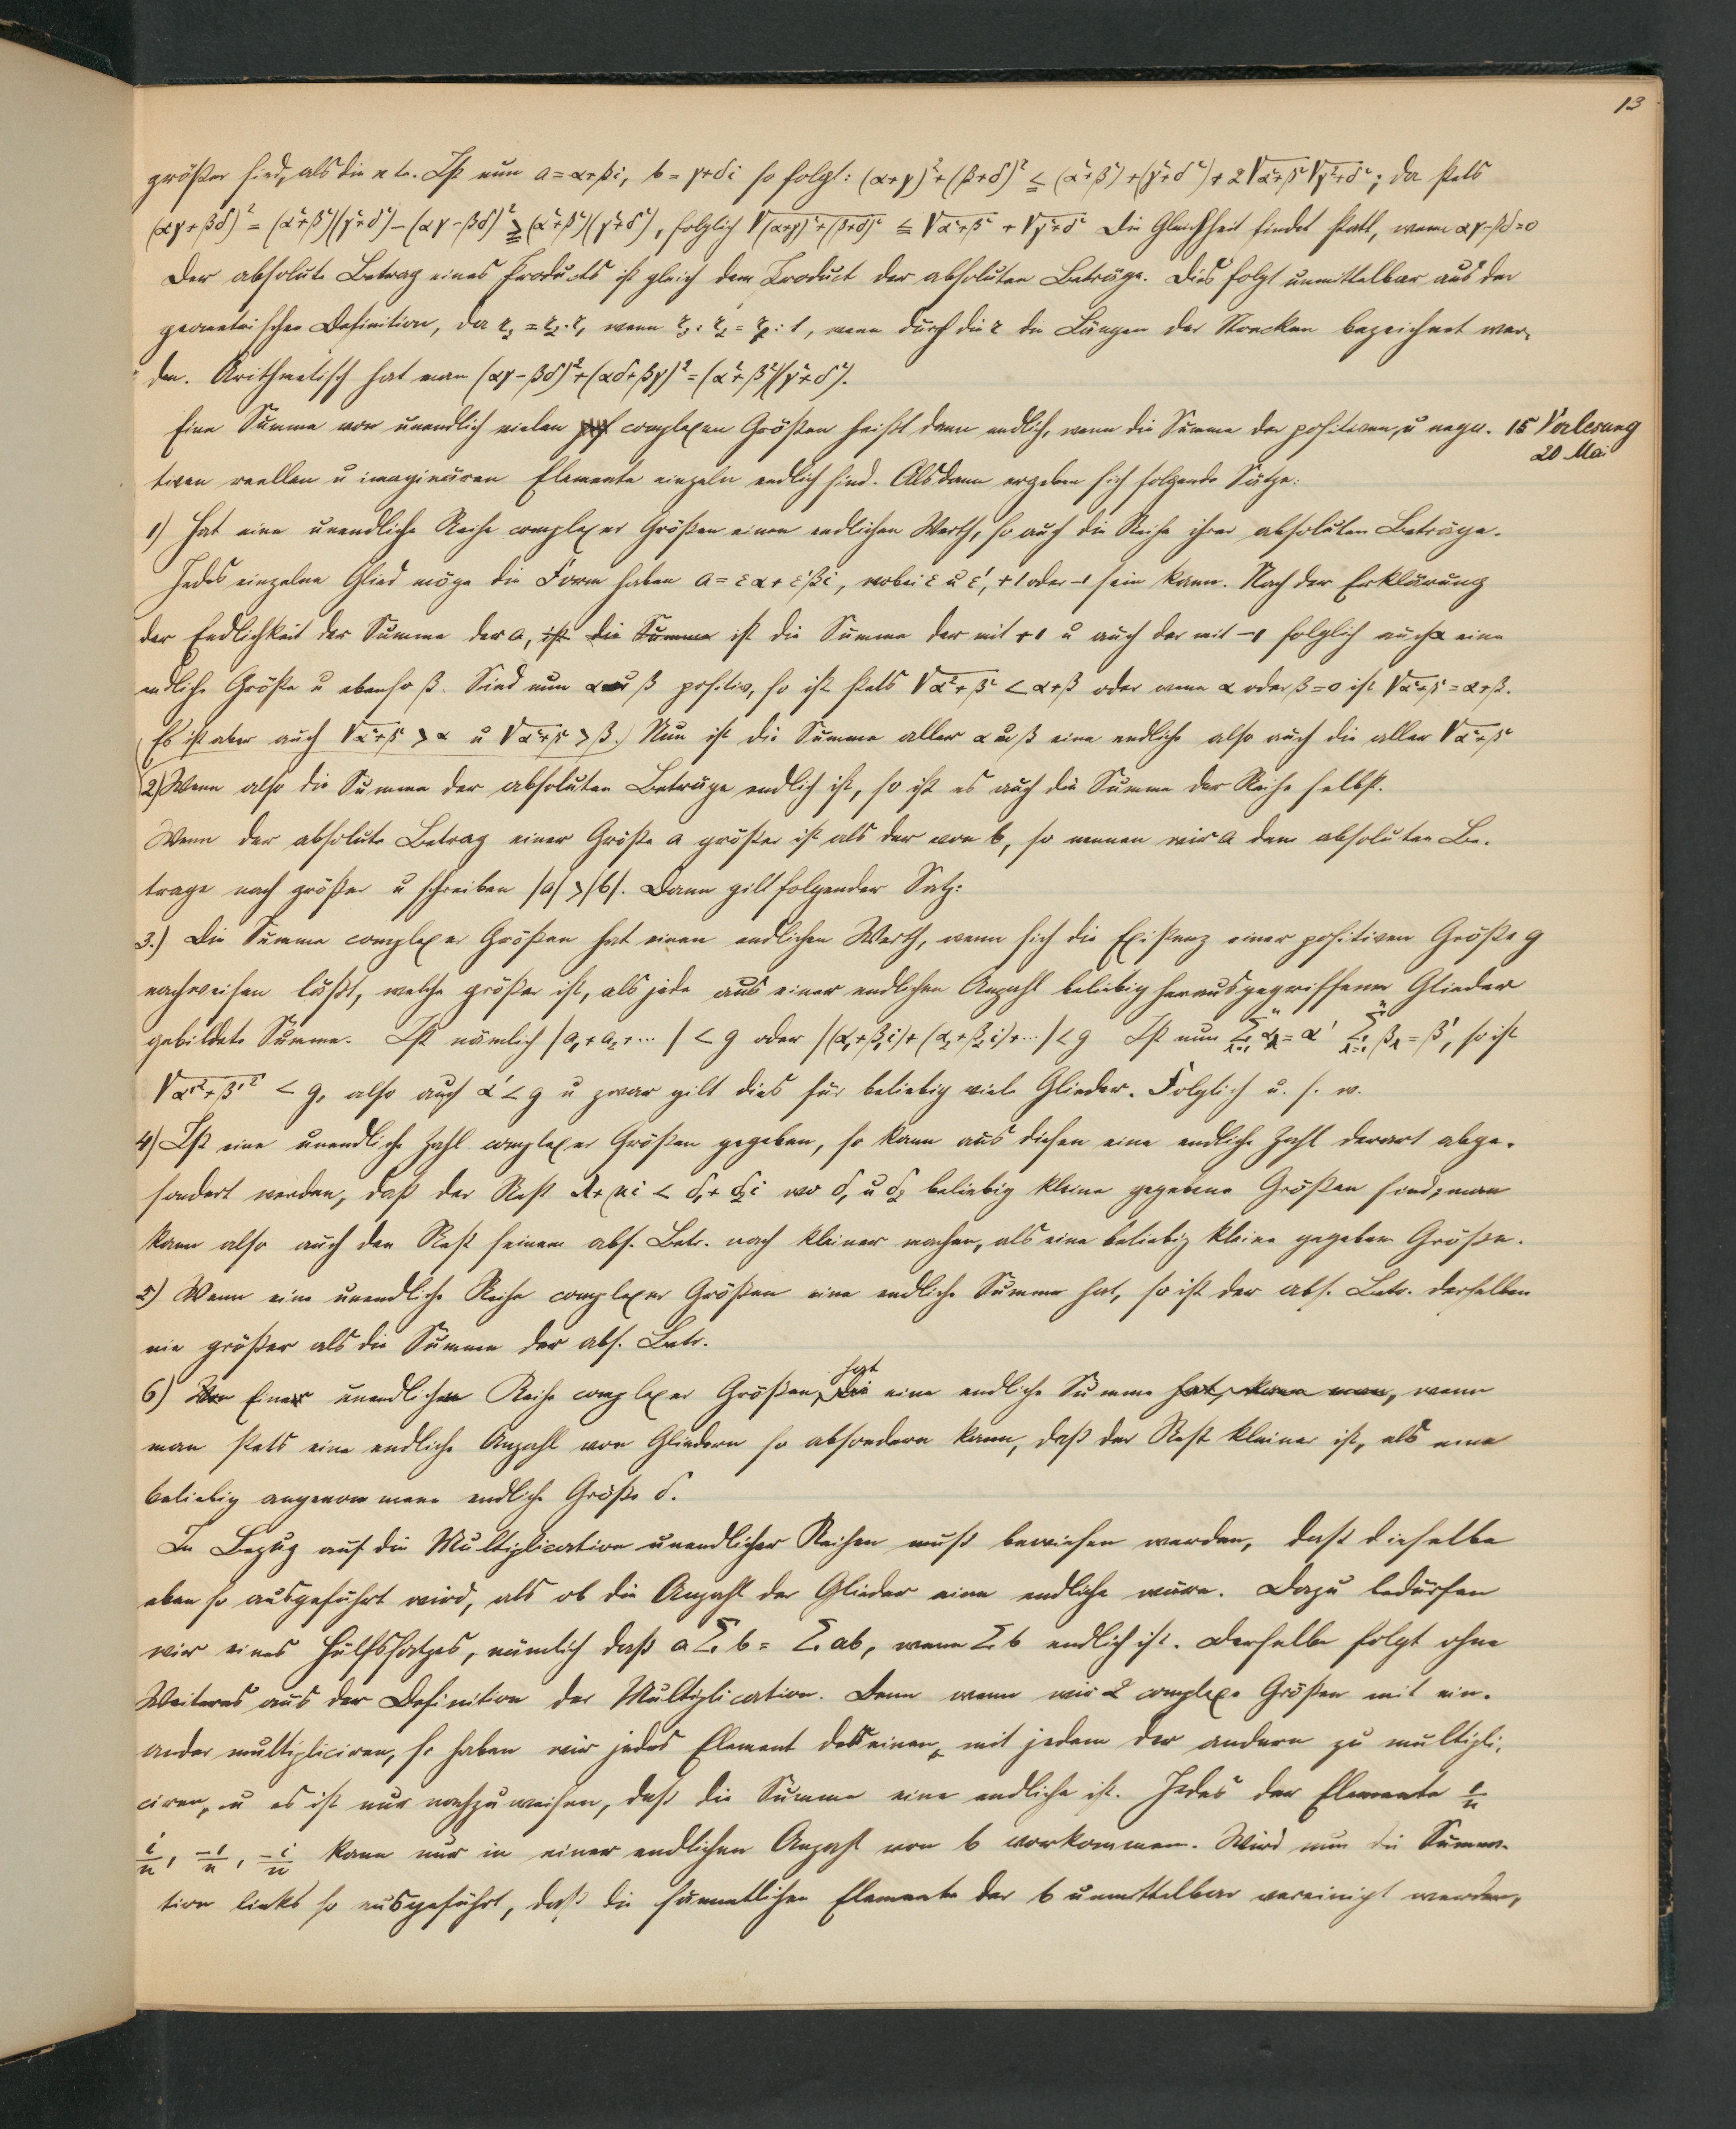 13
größer sind, als die etc. Ist nun a = α+βi, b = γ+δi so folgt: (α+γ)²+(β+δ)² ≦ (α²+β²)+(γ²+δ²)+2√α²+β² √γ²+δ²; da stets
(αγ+βδ)² = (α²+β²)(γ²+δ²)-(αγ-βδ)² ≧ (α²+β²)(γ²+δ²), folglich √(α+γ)²+(β+δ)² ≦ √α²+β² + √γ²+δ² Die Gleichheit findet statt, wenn αγ-βδ=0
Der absolute Betrag eines Products ist gleich dem Product der absoluten Beträge. Dies folgt unmittelbar aus der
geometrischen Definition, da r₃ = r₂.r₁ wenn r₃ : r₂ = r₁ : 1, wenn durch die r die Längen der Strecken bezeichnet wer-
den. Arithmetisch hat man (αγ-βδ)²+(αδ+βγ)² = (α²+β²)(γ²+δ²).
Eine Summe von unendlich vielen complexen Größen heißt dann endlich, wenn die Summe der positiven u nega- 15 Vorlesung
20 Mai
tiven reellen u imaginären Elemente einzeln endlich sind. Alsdann ergeben sich folgende Sätze:
1) Hat eine unendliche Reihe complexer Größen einen endlichen Werth, so auch die Reihe ihrer absoluten Beträge.
Jedes einzelne Glied möge die Form haben a = εα+ε'βi, wobei ε u ε', +1 oder -1 sein kann. Nach der Erklärung
der Endlichkeit der Summe der a, ist die Summe ist die Summe der mit +1 u auch der mit -1 folglich auch α eine
endliche Größe u ebenso β. Sind nun α u β positiv, so ist stets √α²+β² < α+β oder wenn α oder β=0 ist √α²+β² = α+β.
(Es ist aber auch √α²+β² > α u √α²+β² > β.) Nun ist die Summe aller α u β eine endliche also auch die aller √α²+β²
2) Wenn also die Summe der absoluten Beträge endlich ist, so ist es auch die Summe der Reihe selbst.
Wenn der absolute Betrag einer Größe a größer ist als der von b, so nennen wir a dem absoluten Be-
trage nach größer u schreiben |a| > |b|. Dann gilt folgender Satz:
3.) Die Summe complexer Größen hat einen endlichen Werth, wenn sich die Existenz einer positiven Größe g
nachweisen läßt, welche größer ist, als jede aus einer endlichen Anzahl beliebig herausgegriffener Glieder
gebildete Summe. Ist nämlich |a₁+a₂+...| < g oder |(α₁+β₁i)+(α₂+β₂i)+...| < g Ist nun Σ αλ = α' Σ βλ = β', so ist
√α'²+β'² < g, also auch α' < g u zwar gilt dies für beliebig viele Glieder. Folglich u. s. w.
4) Ist eine unendliche Zahl complexer Größen gegeben, so kann aus diesen eine endliche Zahl derart abge-
sondert werden, daß der Rest λ+μi < δ₁+δ₂i wo δ₁ u δ₂ beliebig kleine gegebene Größen sind; man
kann also auch den Rest seinem abs. Betr. nach kleiner machen, als eine beliebig kleine gegebene Größe.
5) Wenn eine unendliche Reihe complexer Größen eine endliche Summe hat, so ist der abs. Betr. derselben
nie größer als die Summe der abs. Betr.
6) Eine unendliche Reihe complexer Größen, die hat eine endliche Summe hat, kann man, wenn
man stets eine endliche Anzahl von Gliedern so absondern kann, daß der Rest kleiner ist, als eine
beliebig angenommene endliche Größe δ.
In Bezug auf die Multiplication unendlicher Reihen muß bewiesen werden, daß dieselbe
eben so ausgeführt wird, als ob die Anzahl der Glieder eine endliche wäre. Dazu bedürfen
wir eines Hülfssatzes, nämlich daß a Σ b = Σ ab, wenn Σ b endlich ist. Derselbe folgt ohne
Weiteres aus der Definition der Multiplication. Denn wenn wir 2 complexe Größen mit ein-
ander multipliciren, so haben wir jedes Element des einen, mit jedem der andern zu multipli-
ciren, u es ist nur nachzuweisen, daß die Summe eine endliche ist. Jedes der Elemente 1/n
i/n, -1/n, -i/n kann nur in einer endlichen Anzahl von b vorkommen. Wird nun die Summa-
tion links so ausgeführt, daß die sämmtlichen Elemente der b unmittelbar vereinigt werden,